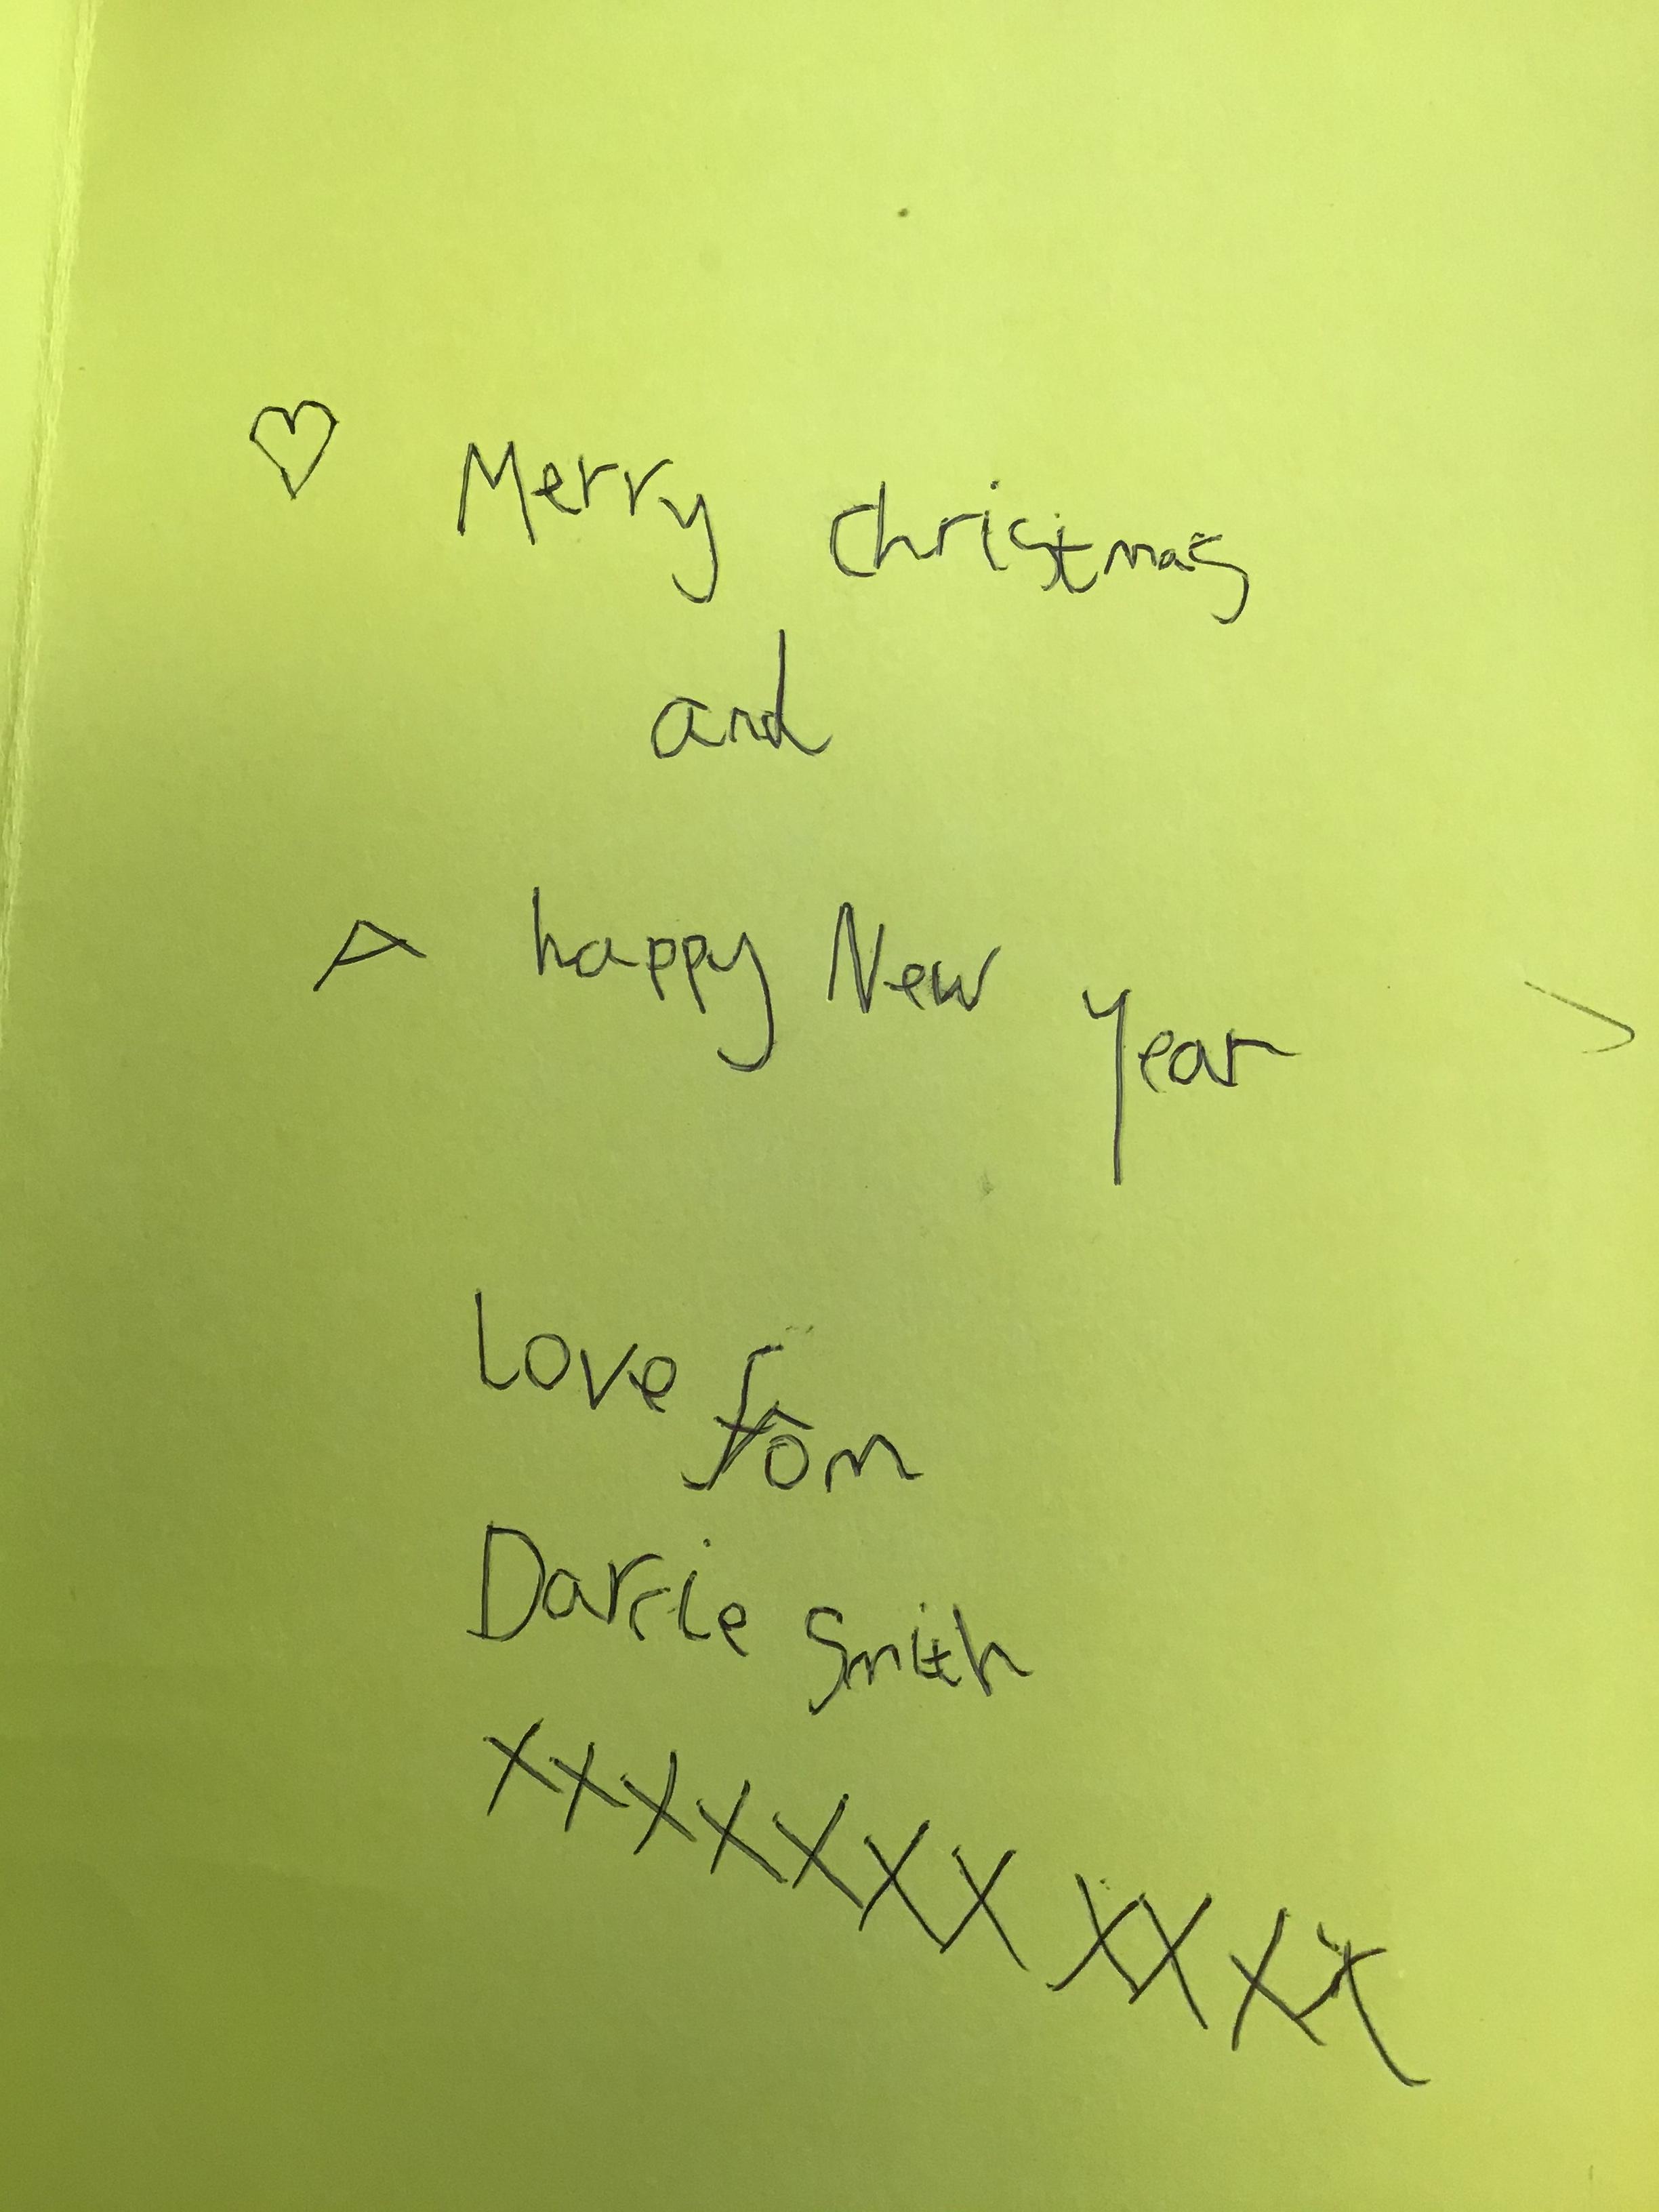 ♡ Merry christmas
and
A happy New Year
Love from
Darcie Smith
xxxxxxxxxxx